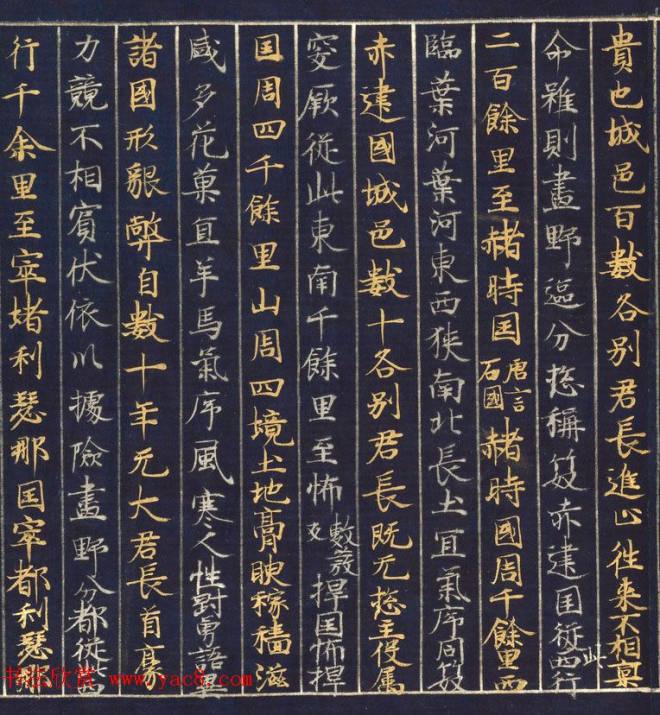 貴也城邑百數各別君長進止往來不相稟
命雖則畫野區分捴稱笯赤建国從此西行
二百餘里至赭時国唐言石國赭時國周千餘里西
臨葉河葉河東西狹南北長土宜氣序同笯
赤建國城邑數十各別君長既无捴主役属
突厥從此東南千餘里至怖敷發反捍国怖捍
国周四千餘里山周四境土地膏腴稼穡滋
盛多花菓宜羊馬氣序風寒人性對勇語異
諸國形貌弊自數十年无大君長首豪
力競不相賓伏依川據險畫野分都從此
行千余里至窣堵利瑟那国窣都利瑟那
书法欣赏 www.yac8.com